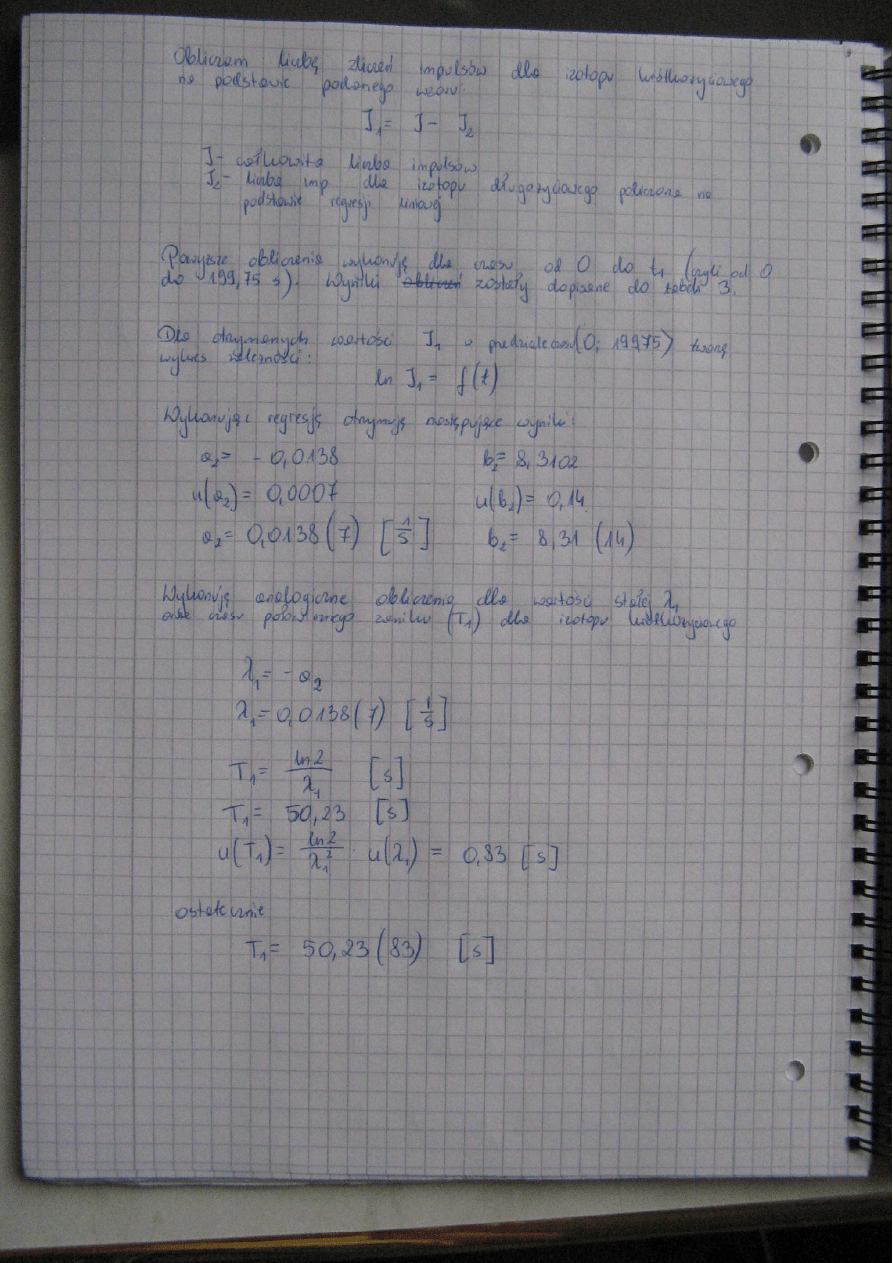 Obliczam liczbę zliczeń impulsów dla izotopu krótkożyciowego
na podstawie podanego wzoru:
J₁ = J - J₂
J - całkowita liczba impulsów
J₂ - liczba imp. dla izotopu długożyciowego policzona na
podstawie regresji liniowej
Powyższe obliczenia wykonuję dla czasu od 0 do t₁ (czyli od 0
do 199,75 s). Wyniki obliczeń zostały dopisane do tabeli 3.
Dla otrzymanych wartości J₁ w przedziale czasu (0; 199,75) tworzę
wykres zależności:
ln J₁ = f(t)
Wykonując regresję otrzymuję następujące wyniki:
a₂ = - 0,0138 b₂ = 8,3102
u(a₂) = 0,0007 u(b₂) = 0,14
a₂ = 0,0138(7) [1/s] b₂ = 8,31 (14)
Wykonuję analogiczne obliczenia dla wartości stałej λ₁
oraz czasu połowicznego zaniku (T₁) dla izotopu krótkożyciowego
λ₁ = -a₂
λ₁ = 0,0138(7) [1/s]
T₁ = ln2/λ₁ [s]
T₁ = 50,23 [s]
u(T₁) = ln2/λ₁² · u(λ₁) = 0,83 [s]
ostatecznie
T₁ = 50,23(83) [s]